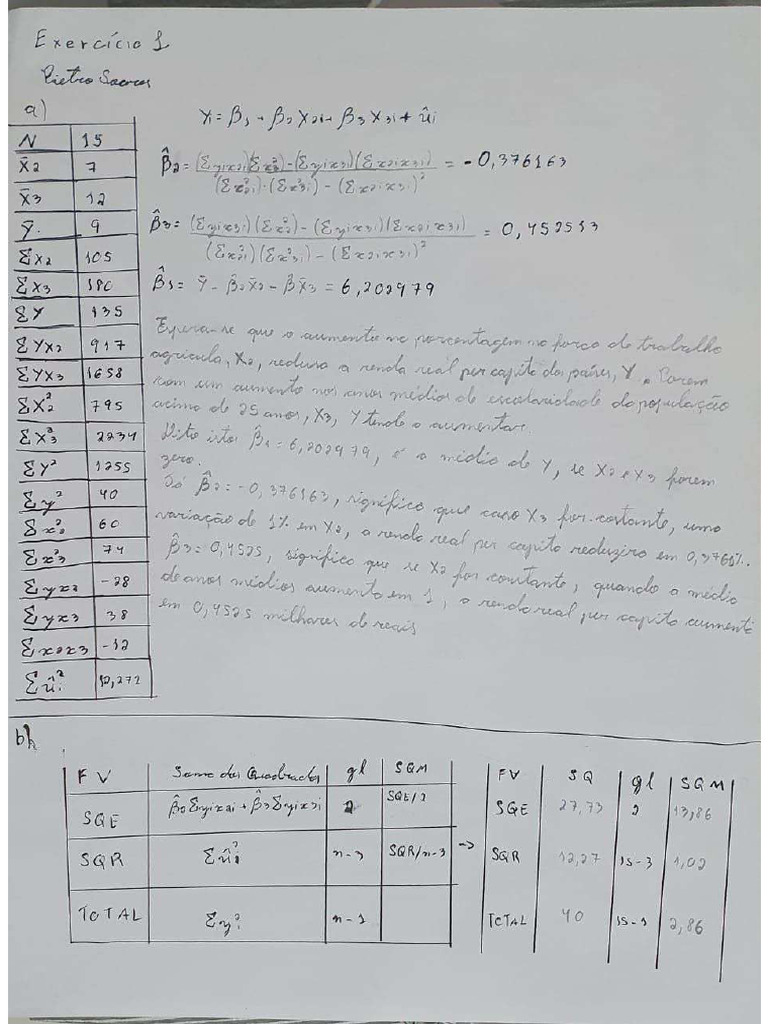 Exercício 1
Pietro Soares
a)
Yi = β1 + β2 X2i + β3 X3i + ûi
N | 15
X̄2 | 7
X̄3 | 12
Ȳ | 9
ΣX2 | 105
ΣX3 | 180
ΣY | 135
ΣYX2 | 917
ΣYX3 | 1658
ΣX2² | 795
ΣX3² | 2234
ΣY² | 1255
Σy² | 40
Σx2² | 60
Σx3² | 74
Σyx2 | -28
Σyx3 | 38
Σx2x3 | -12
Σûi² | 12,272
β̂2 = (Σyix2i)(Σx3i²) - (Σyix3i)(Σx2ix3i) / (Σx2i²)·(Σx3i²) - (Σx2ix3i)² = -0,376163
β̂3 = (Σyix3i)(Σx2i²) - (Σyix2i)(Σx2ix3i) / (Σx2i²)(Σx3i²) - (Σx2ix3i)² = 0,452513
β̂1 = Ȳ - β̂2X̄2 - β̂X̄3 = 6,202979
Espera-se que o aumento na porcentagem na força de trabalho
agrícula, X2, reduza a renda real per capita dos países, Y. Porem
com um aumento nos anos médios de escolaridade da população
acima de 25 anos, X3, Y tende a aumentar.
Dito isto, β̂1 = 6,202979, é a média de Y, se X2 e X3 forem
zero.
Já β̂2 = -0,376163, significa que caso X3 for constante, uma
variação de 1% em X2, a renda real per capita reduzira em 0,3761%.
β̂3 = 0,4525, significa que se X2 for constante, quando a média
de anos médios aumenta em 1, a renda real per capita aumenta
em 0,4525 milhares de reais
b)
FV | Soma dos Quadrados | gl | SQM
SQE | β̂2Σyix2i + β̂3Σyix3i | 2 | SQE/2
SQR | Σûi² | n-3 | SQR/n-3
TOTAL | Σyi² | n-1
->
FV | SQ | gl | SQM
SQE | 27,73 | 2 | 13,86
SQR | 12,27 | 15-3 | 1,02
TOTAL | 40 | 15-1 | 2,86